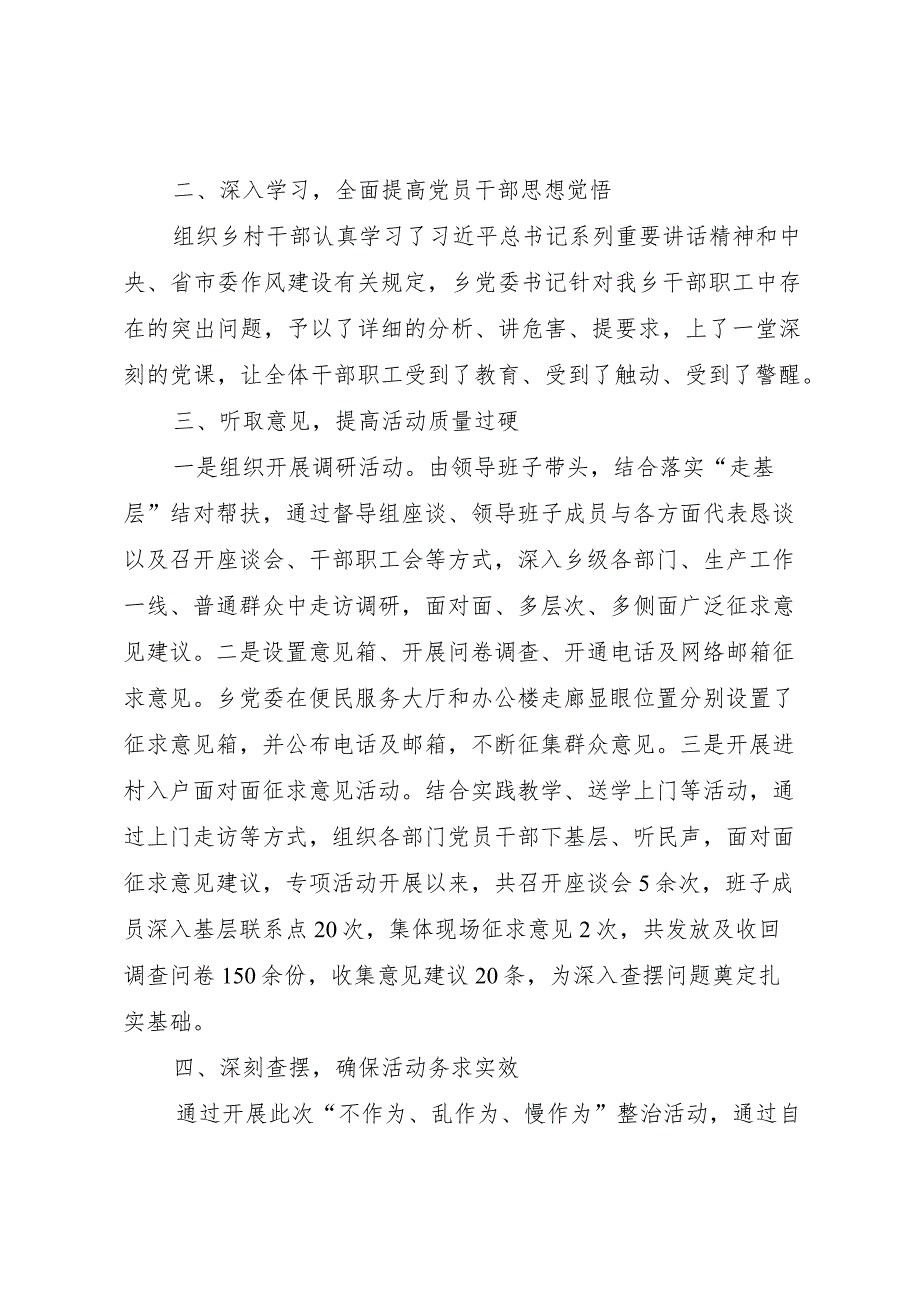 二、深入学习，全面提高党员干部思想觉悟
组织乡村干部认真学习了习近平总书记系列重要讲话精神和中
央、省市委作风建设有关规定，乡党委书记针对我乡干部职工中存
在的突出问题，予以了详细的分析、讲危害、提要求，上了一堂深
刻的党课，让全体干部职工受到了教育、受到了触动、受到了警醒。
三、听取意见，提高活动质量过硬
一是组织开展调研活动。由领导班子带头，结合落实“走基
层”结对帮扶，通过督导组座谈、领导班子成员与各方面代表恳谈
以及召开座谈会、干部职工会等方式，深入乡级各部门、生产工作
一线、普通群众中走访调研，面对面、多层次、多侧面广泛征求意
见建议。二是设置意见箱、开展问卷调查、开通电话及网络邮箱征
求意见。乡党委在便民服务大厅和办公楼走廊显眼位置分别设置了
征求意见箱，并公布电话及邮箱，不断征集群众意见。三是开展进
村入户面对面征求意见活动。结合实践教学、送学上门等活动，通
过上门走访等方式，组织各部门党员干部下基层、听民声，面对面
征求意见建议，专项活动开展以来，共召开座谈会 5 余次，班子成
员深入基层联系点 20 次，集体现场征求意见 2 次，共发放及收回
调查问卷 150 余份，收集意见建议 20 条，为深入查摆问题奠定扎
实基础。
四、深刻查摆，确保活动务求实效
通过开展此次“不作为、乱作为、慢作为”整治活动，通过自